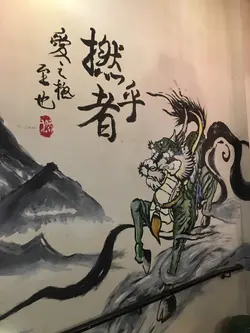 撚乎者
愛之極至也